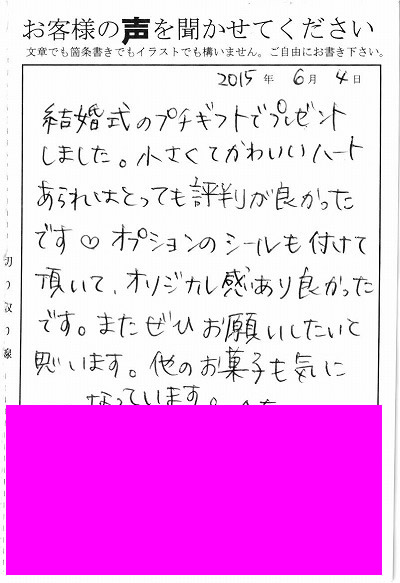 お客様の声を聞かせてください
文章でも箇条書きでもイラストでも構いません。ご自由にお書き下さい。
2015年 6月 4日
結婚式のプチギフトでプレゼント
しました。小さくてかわいいハート
あられはとっても評判が良かった
です♡ オプションのシールも付けて
頂いて、オリジナル感あり良かった
です。またぜひお願いしたいと
思います。他のお菓子も気に
なっています。
切り取り線